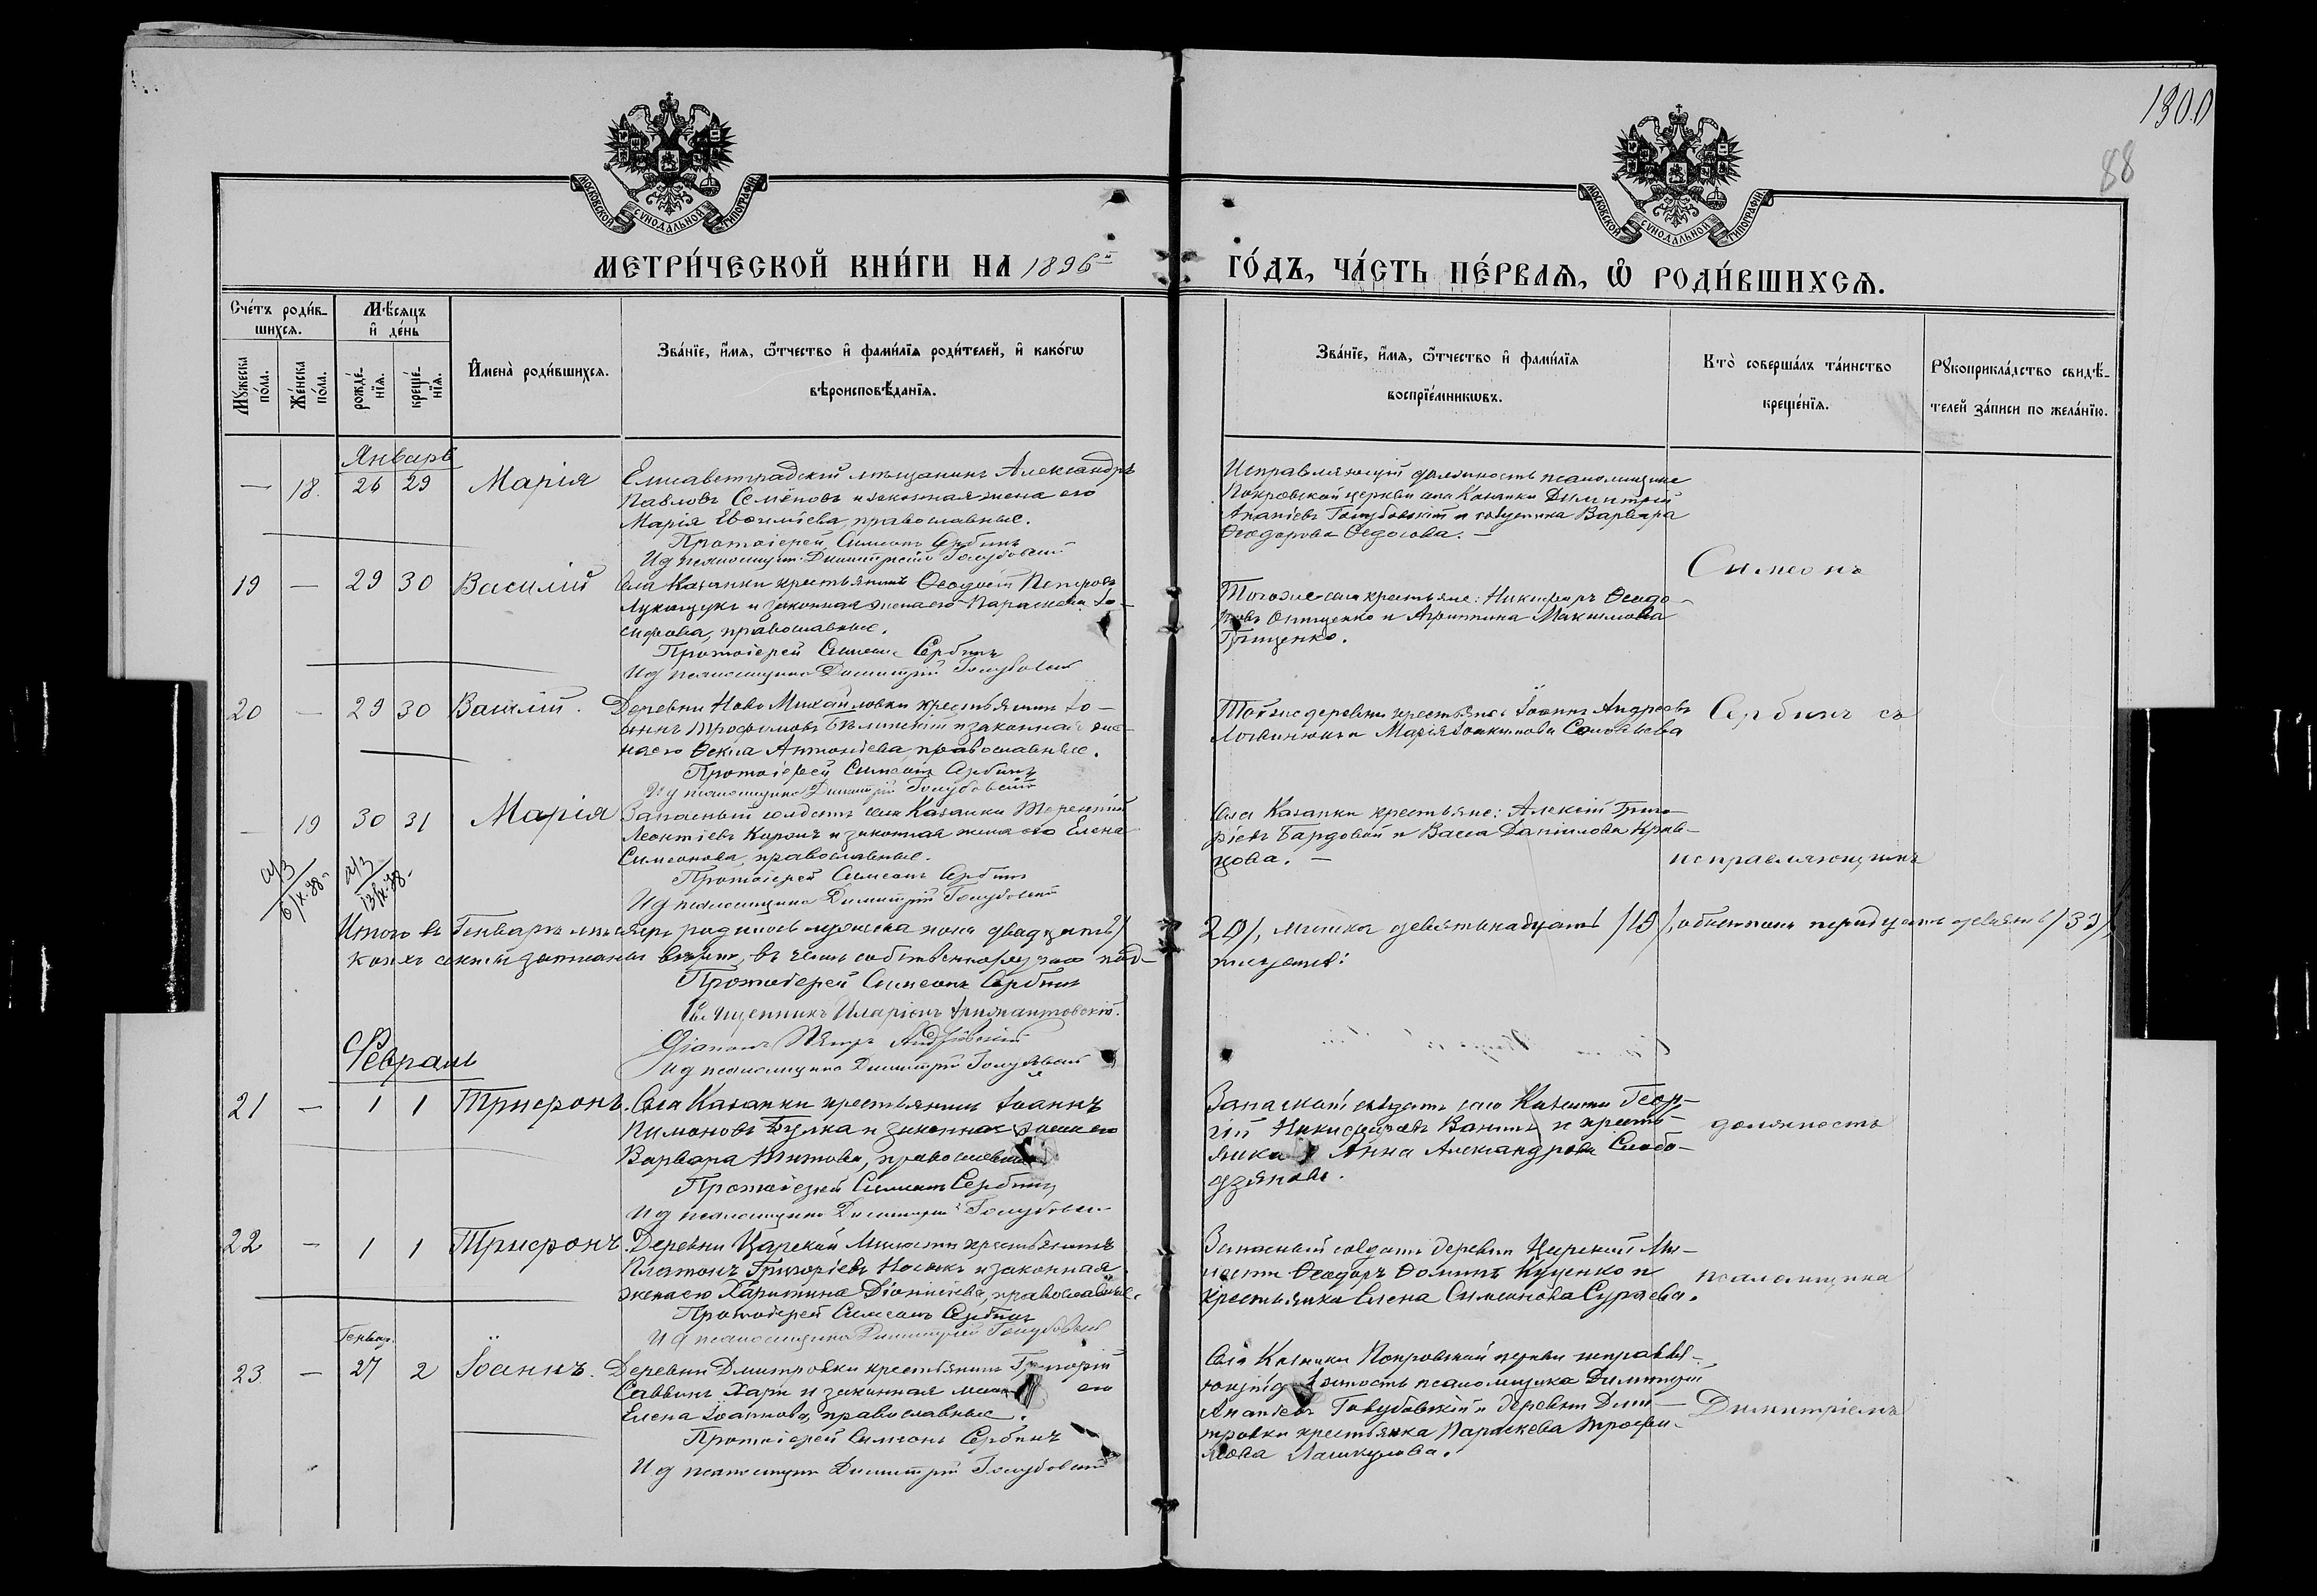 1300
88
МОСКОВСКОЙ СѴНОДАЛЬНОЙ ТИПОГРАФІИ
МОСКОВСКОЙ СѴНОДАЛЬНОЙ ТИПОГРАФІИ
МЕТРИ́ЧЕСКОЙ КНИ́ГИ НА 1896й ГО́ДЪ, ЧА́СТЬ ПЕ́РВАЯ, Ѡ РОДИ́ВШИХСЯ.
Сче́тъ роди́в-
шихся.
Мѣ́сяцъ
и҆ де́нь
Мꙋ́жеска по́ла.
Же́нска по́ла.
рожде́-
нїя.
креще́-
нїя.
И҆мена̀ роди́вшихся.
Зва́нїе, и҆́мя, ѻ҆́тчество и҆ фами́лїя роди́телей, и҆ како́гѡ
вѣроисповѣ́данїя.
Зва́нїе, и҆́мя, ѻ҆́тчество и҆ фами́лїя
воспрїе́мникѡвъ.
Кто̀ соверша́лъ та́инство
креще́нїя.
Рꙋкоприкла́дство свидѣ́-
телей за́писи по жела́нїю.
Январь
— 18. 26 29 Марія
Елисаветградскій мѣщанинъ Александръ
Павловъ Семёновъ и законная жена его
Марія Евѳиміева, православные.
Протоіерей Симеонъ Сербинъ
И д псаломщика Димитрій Голубовскій
Исправляющій должность псаломщика
Покровской церкви села Казанки Димитрій
Ананіевъ Голубовскій и Варвара
Ѳеодорова Ѳедосова. —
Симеонъ
19 — 29 30 Василій
Села Казанки крестьянинъ Ѳеодосій Петровъ
Лукащукъ и законная жена его Параскева Іо-
сифова, православные.
Протоіерей Симеонъ Сербинъ
И д псаломщика Димитрій Голубовскій
Тогоже села крестьяне: Никифоръ Ѳеодо-
ровъ Онищенко и Агриппина Максимова
Грищенко.
20 — 29 30 Василій.
Деревни Ново Михайловки крестьянинъ Іо-
аннъ Трофимовъ Бѣлинскій и законная же-
на его Ѳекла Антоніева православные.
Протоіерей Симеонъ Сербинъ
И д псаломщика Димитрій Голубовскій
Тойже деревни крестьяне: Іоаннъ Андреевъ
Логвинюкъ и Марія Іоакимова Соловьева
Сербинъ съ
— 19 30 31 Марія
Запасный солдатъ села Казанки Терентій
Леонтіевъ и законная жена его Елена
Симеонова, православные.
Протоіерей Симеонъ Сербинъ
И д псаломщика Димитрій Голубовскій
Села Казанки крестьяне: Алексій Григо-
ріевъ Бардовой и Васса Даніилова Крав-
цова. —
исправляющимъ
6/IX.38
13/IX.38
Итого въ Генварѣ мѣсяцѣ родилось мужеска пола двадцать /20/, женска девятьнадцать /19/, обоего пола тридцать девять /39/,
коихъ записаны вѣрно, въ чемъ собственноручно под-
писуемся:
Протоіерей Симеонъ Сербинъ
Священникъ Иларіонъ
Діаконъ Петръ
И д псаломщика Димитрій Голубовскій
Февраль
21 — 1 1 Трифонъ.
Села Казанки крестьянинъ Іоаннъ
Пимоновъ Булка и законная жена его
Варвара Титова, православные
Протоіерей Симеонъ Сербинъ
И д псаломщика Димитрій Голубовскій
Запасной солдатъ села Казанки Геор-
гій Никифоровъ и кресть-
янка Анна Александрова Слобо-
дзянова.
должность
22 — 1 1 Трифонъ.
Деревни Царской Милости крестьянинъ
Платонъ Григоріевъ Носикъ и законная
жена его Харитина Діонисіева, православные.
Протоіерей Симеонъ Сербинъ
И д псаломщика Димитрій Голубовскій
Запасный солдатъ деревни Царской Ми-
лости Ѳеодоръ Ѳоминъ Куценко и
крестьянка Елена Симеонова Сураева.
псаломщика
Генвар.
23 — 27 2 Іоаннъ.
Деревни Дмитровки крестьянинъ Григорій
Саввинъ и законная жена его
Елена Іоаннова, православные.
Протоіерей Симеонъ Сербинъ
И д псаломщика Димитрій Голубовскій
Села Казанки Покровской церкви исправля-
ющій должность псаломщика Димитрій
Ананіевъ Голубовскій и деревни Дми-
тровки крестьянка Параскева Трофи-
мова Лашкулова.
Димитріемъ